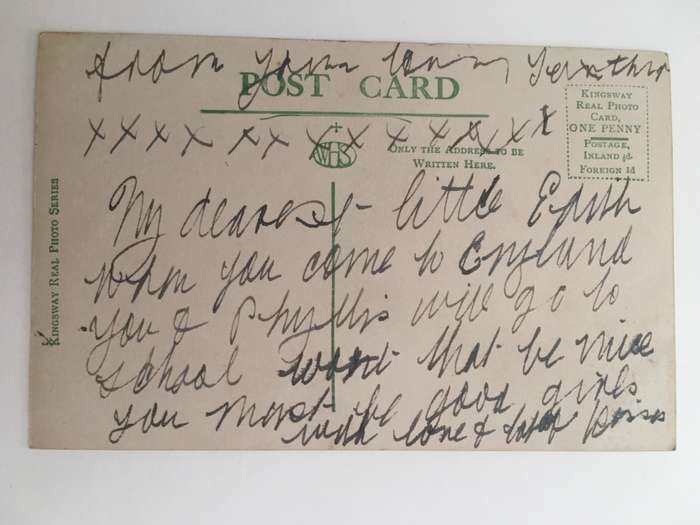 from your
POST CARD
xxxx xx xxxxxxxx
KINGSWAY
REAL PHOTO
CARD,
ONE PENNY
POSTAGE,
INLAND ½d.
FOREIGN 1d
WHS
ONLY THE ADDRESS TO BE
WRITTEN HERE.
KINGSWAY REAL PHOTO SERIES
My dearest little Edith
When you come to England
you & Phyllis will go to
school wont that be nice
you must be good girls
with love & kisses